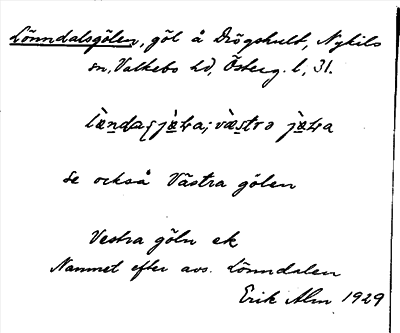 Lönndalsgölen, göl å Drögshult, Nykils
sn, Valkebo hd, Österg. l, 31.
se också Västra gölen
Vestra göln ek
Namnet efter avs. Lönndalen
Erik Alm 1929